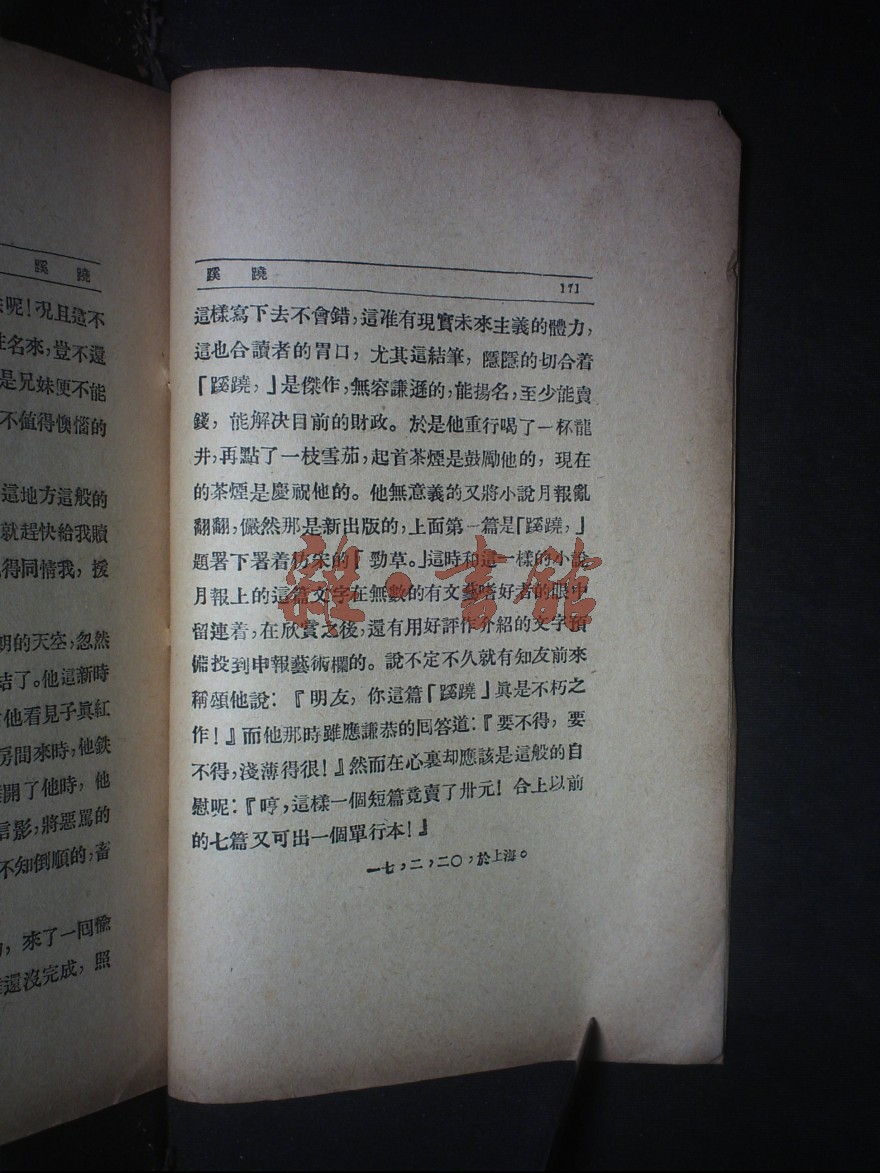 蹊 蹺
呢！况且這不
姓名來，豈不還
是兄妹便不能
不值得懊惱的
這地方這般的
就趕快給我贖
得同情我，援
明的天空，忽然
結了。他這新時
他看見子眞紅
房間來時，他鉄
開了他時，他
言影，將惡罵的
不知倒順的，畜
，來了一回愉
還沒完成，照
蹊 蹺 171
這樣寫下去不會錯，這准有現實未來主義的體力，
這也合讀者的胃口，尤其這結筆，隱隱的切合着
「蹊蹺，」是傑作，無容謙遜的，能揚名，至少能賣
錢，能解决目前的財政。於是他重行喝了一杯龍
井，再點了一枝雪茄，起首茶煙是鼓勵他的，現在
的茶煙是慶祝他的。他無意義的又將小說月報亂
翻翻，儼然那是新出版的，上面第一篇是「蹊蹺，」
題署下署着仿宋的「勁草。」這時和這一樣的小說
月報上的這篇文字在無數的有文藝嗜好者的眼中
留連着，在欣賞之後，還有用好評作介紹的文字預
備投到申報藝術欄的。說不定不久就有知友前來
稱頌他說：『明友，你這篇「蹊蹺」眞是不朽之
作！』而他那時雖應謙恭的囘答道：『要不得，要
不得，淺薄得很！』然而在心裏却應該是這般的自
慰呢：『哼，這樣一個短篇竟賣了卅元！合上以前
的七篇又可出一個單行本！』
一七，二，二〇，於上海。
雜·書館